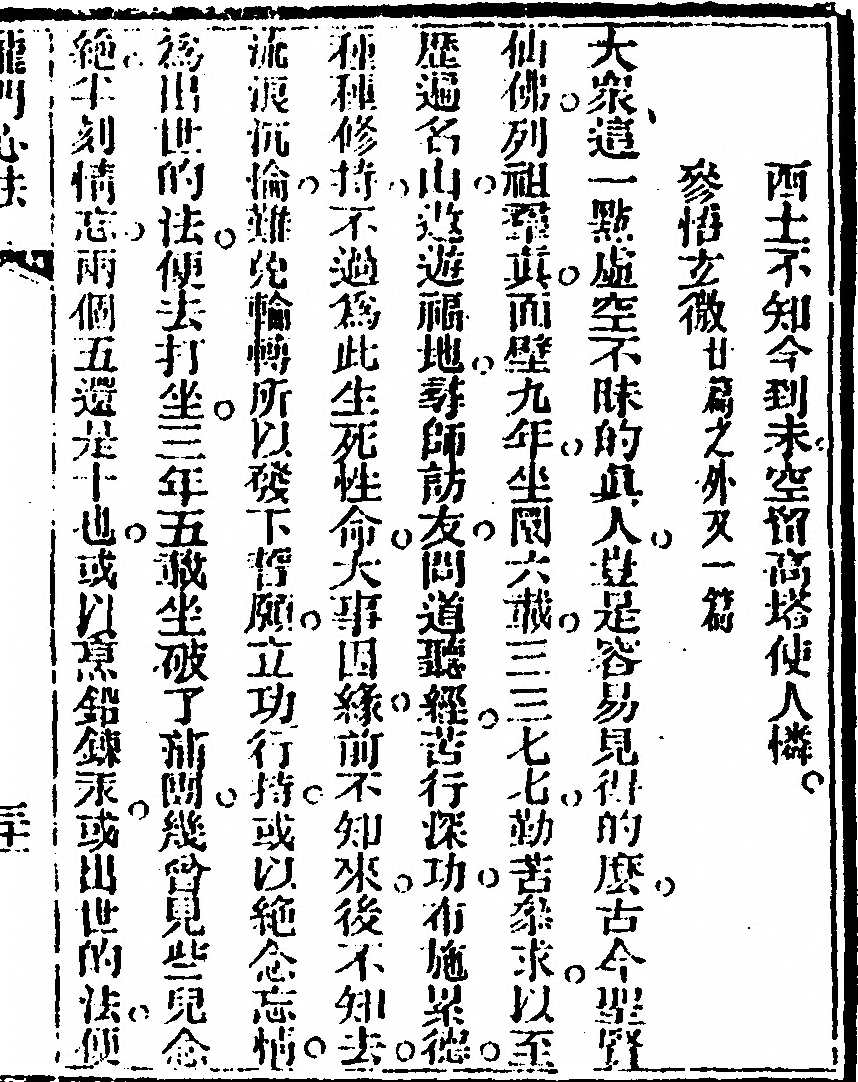 西土不知今到未空留高塔使人憐。
參悟玄微廿篇之外又一篇
大衆、這一點虛空不昧的眞人。豈是容易見得的麼。古今聖賢
仙佛。列祖羣眞。面壁九年。坐關六載。三三七七。勤苦參求。以至
歷遍名山。遨遊福地。尋師訪友。問道聽經。苦行深功。布施累德。
種種修持。不過爲此生死性命。大事因緣。前不知來。後不知去。
流浪沉淪。難免輪轉。所以發下誓願。立功行持。或以絶念忘情。
爲出世的法。便去打坐。三年五載。坐破了蒲團。幾曾見些兒念
絶。半刻情忘。兩個五還是十也。或以烹鉛鍊汞。或出世的法。便
龍門心法
三十